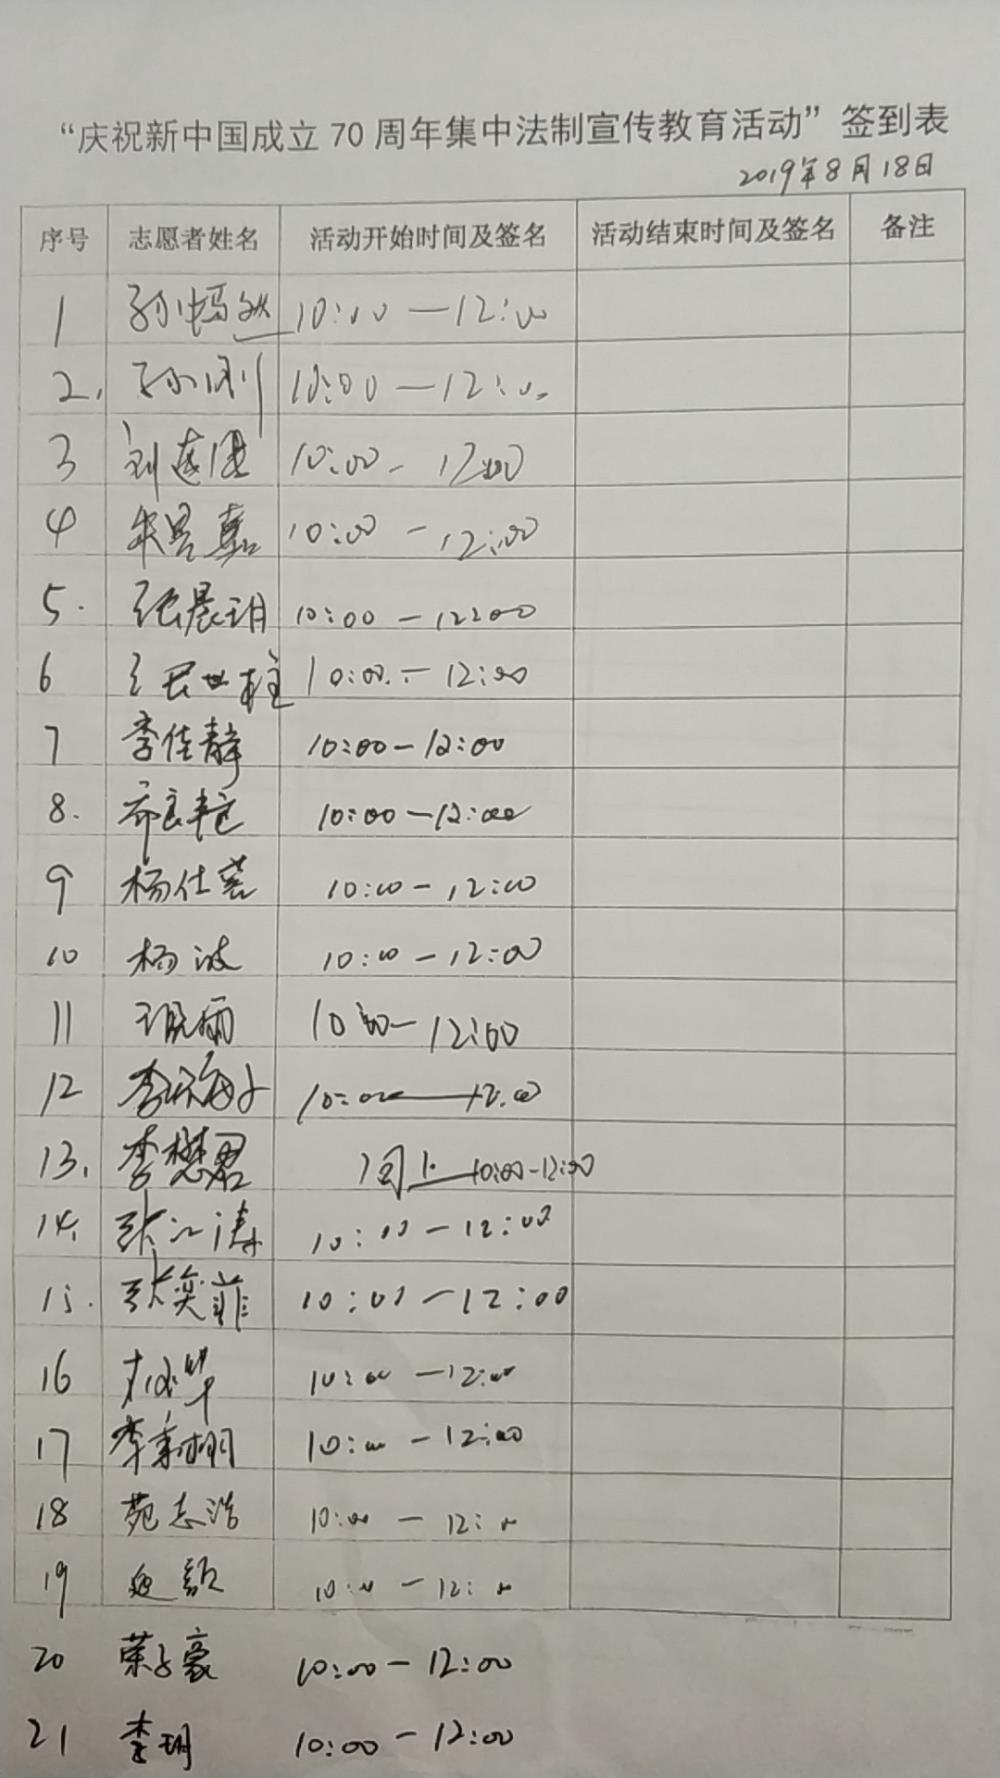 “庆祝新中国成立70周年集中法制宣传教育活动”签到表
2019年8月18日
序号 志愿者姓名 活动开始时间及签名 活动结束时间及签名 备注
1 孙嫣然 10:00—12:00
2. 孙刚 10:00—12:00
3 10:00-12:00
4 朱昱嘉 10:00-12:00
5. 张晨玥 10:00-12:00
6 10:00-12:00
7 李佳静 10:00-12:00
8. 10:00-12:00
9 杨仕蓉 10:00-12:00
10 杨波 10:00-12:00
11 10:00-12:00
12 10:00—12:00
13. 李懋君 同上 10:00-12:00
14. 张江涛 10:00-12:00
15. 张奕菲 10:00-12:00
16 10:00-12:00
17 10:00-12:00
18 苑志浩 10:00-12:00
19 10:00-12:00
20 荣子豪 10:00-12:00
21 李玥 10:00-12:00